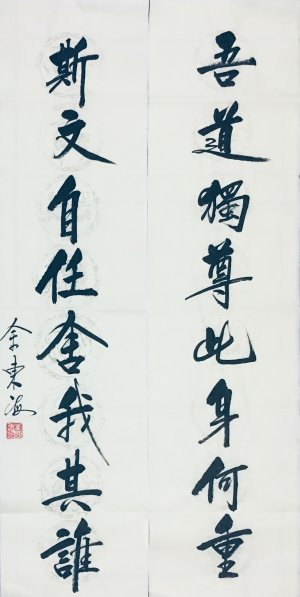 吾道獨尊此身何重
斯文自任舍我其誰
余東海